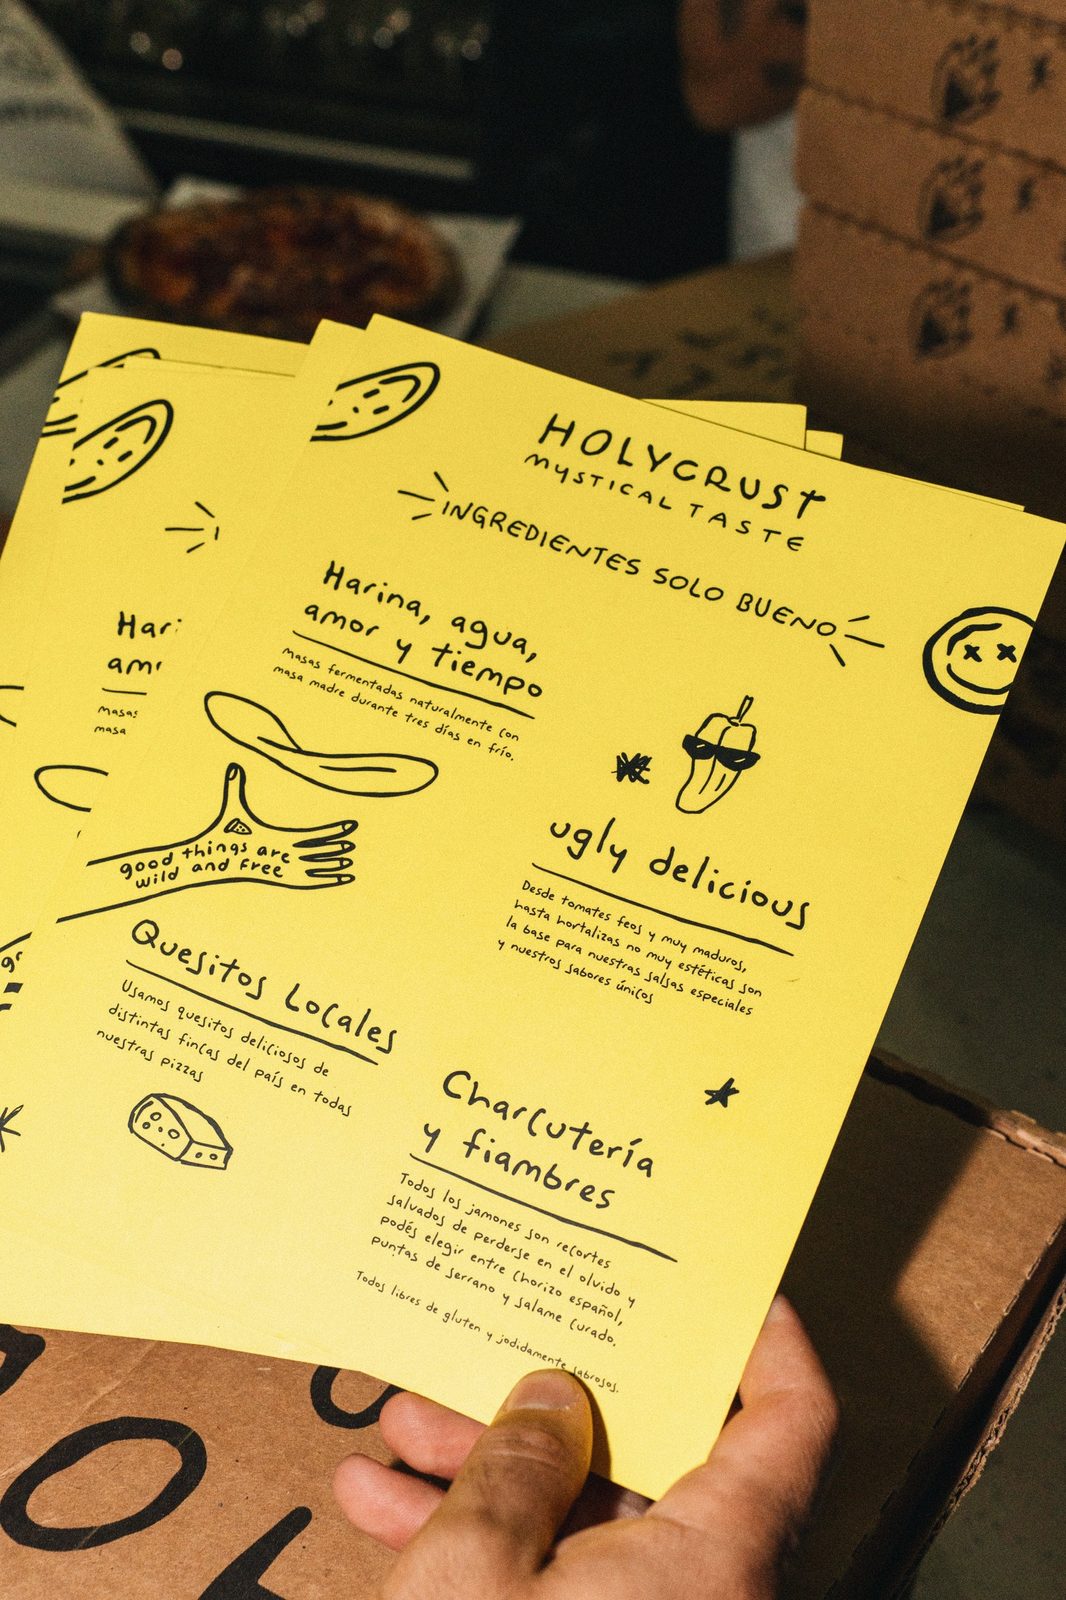 HOLYCRUST
MYSTICAL TASTE
INGREDIENTES SOLO BUENO
Harina, agua,
amor y tiempo
Masas fermentadas naturalmente con
masa madre durante tres días en frío.
good things are
wild and free
ugly delicious
Desde tomates feos y muy maduros,
hasta hortalizas no muy estéticas son
la base para nuestras salsas especiales
y nuestros sabores únicos
Quesitos Locales
Usamos quesitos deliciosos de
distintas fincas del país en todas
nuestras pizzas
Charcutería
y fiambres
Todos los jamones son recortes
salvados de perderse en el olvido y
podés elegir entre chorizo español,
puntas de serrano y salame curado.
Todos libres de gluten y jodidamente sabrosos.
Hari
am
masas
masa